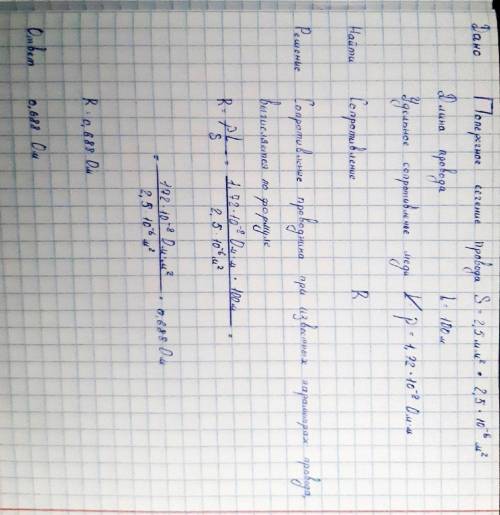 Дано Поперечное сечение провода S = 2,5 мм² = 2,5 · 10⁻⁶ м²
Длина провода L = 100м
Удельное сопротивление меди ρ = 1,72 · 10⁻⁸ Ом·м
Найти Сопротивление R
Решение Сопротивление проводника при известных параметрах провода,
вычисляется по формуле
R = ρL/S = 1,72·10⁻⁸ Ом·м · 100м / 2,5 · 10⁻⁶ м² =
= 172·10⁻⁸ Ом·м² / 2,5·10⁻⁶ м² = 0,688 Ом
R = 0,688 Ом
Ответ 0,688 Ом